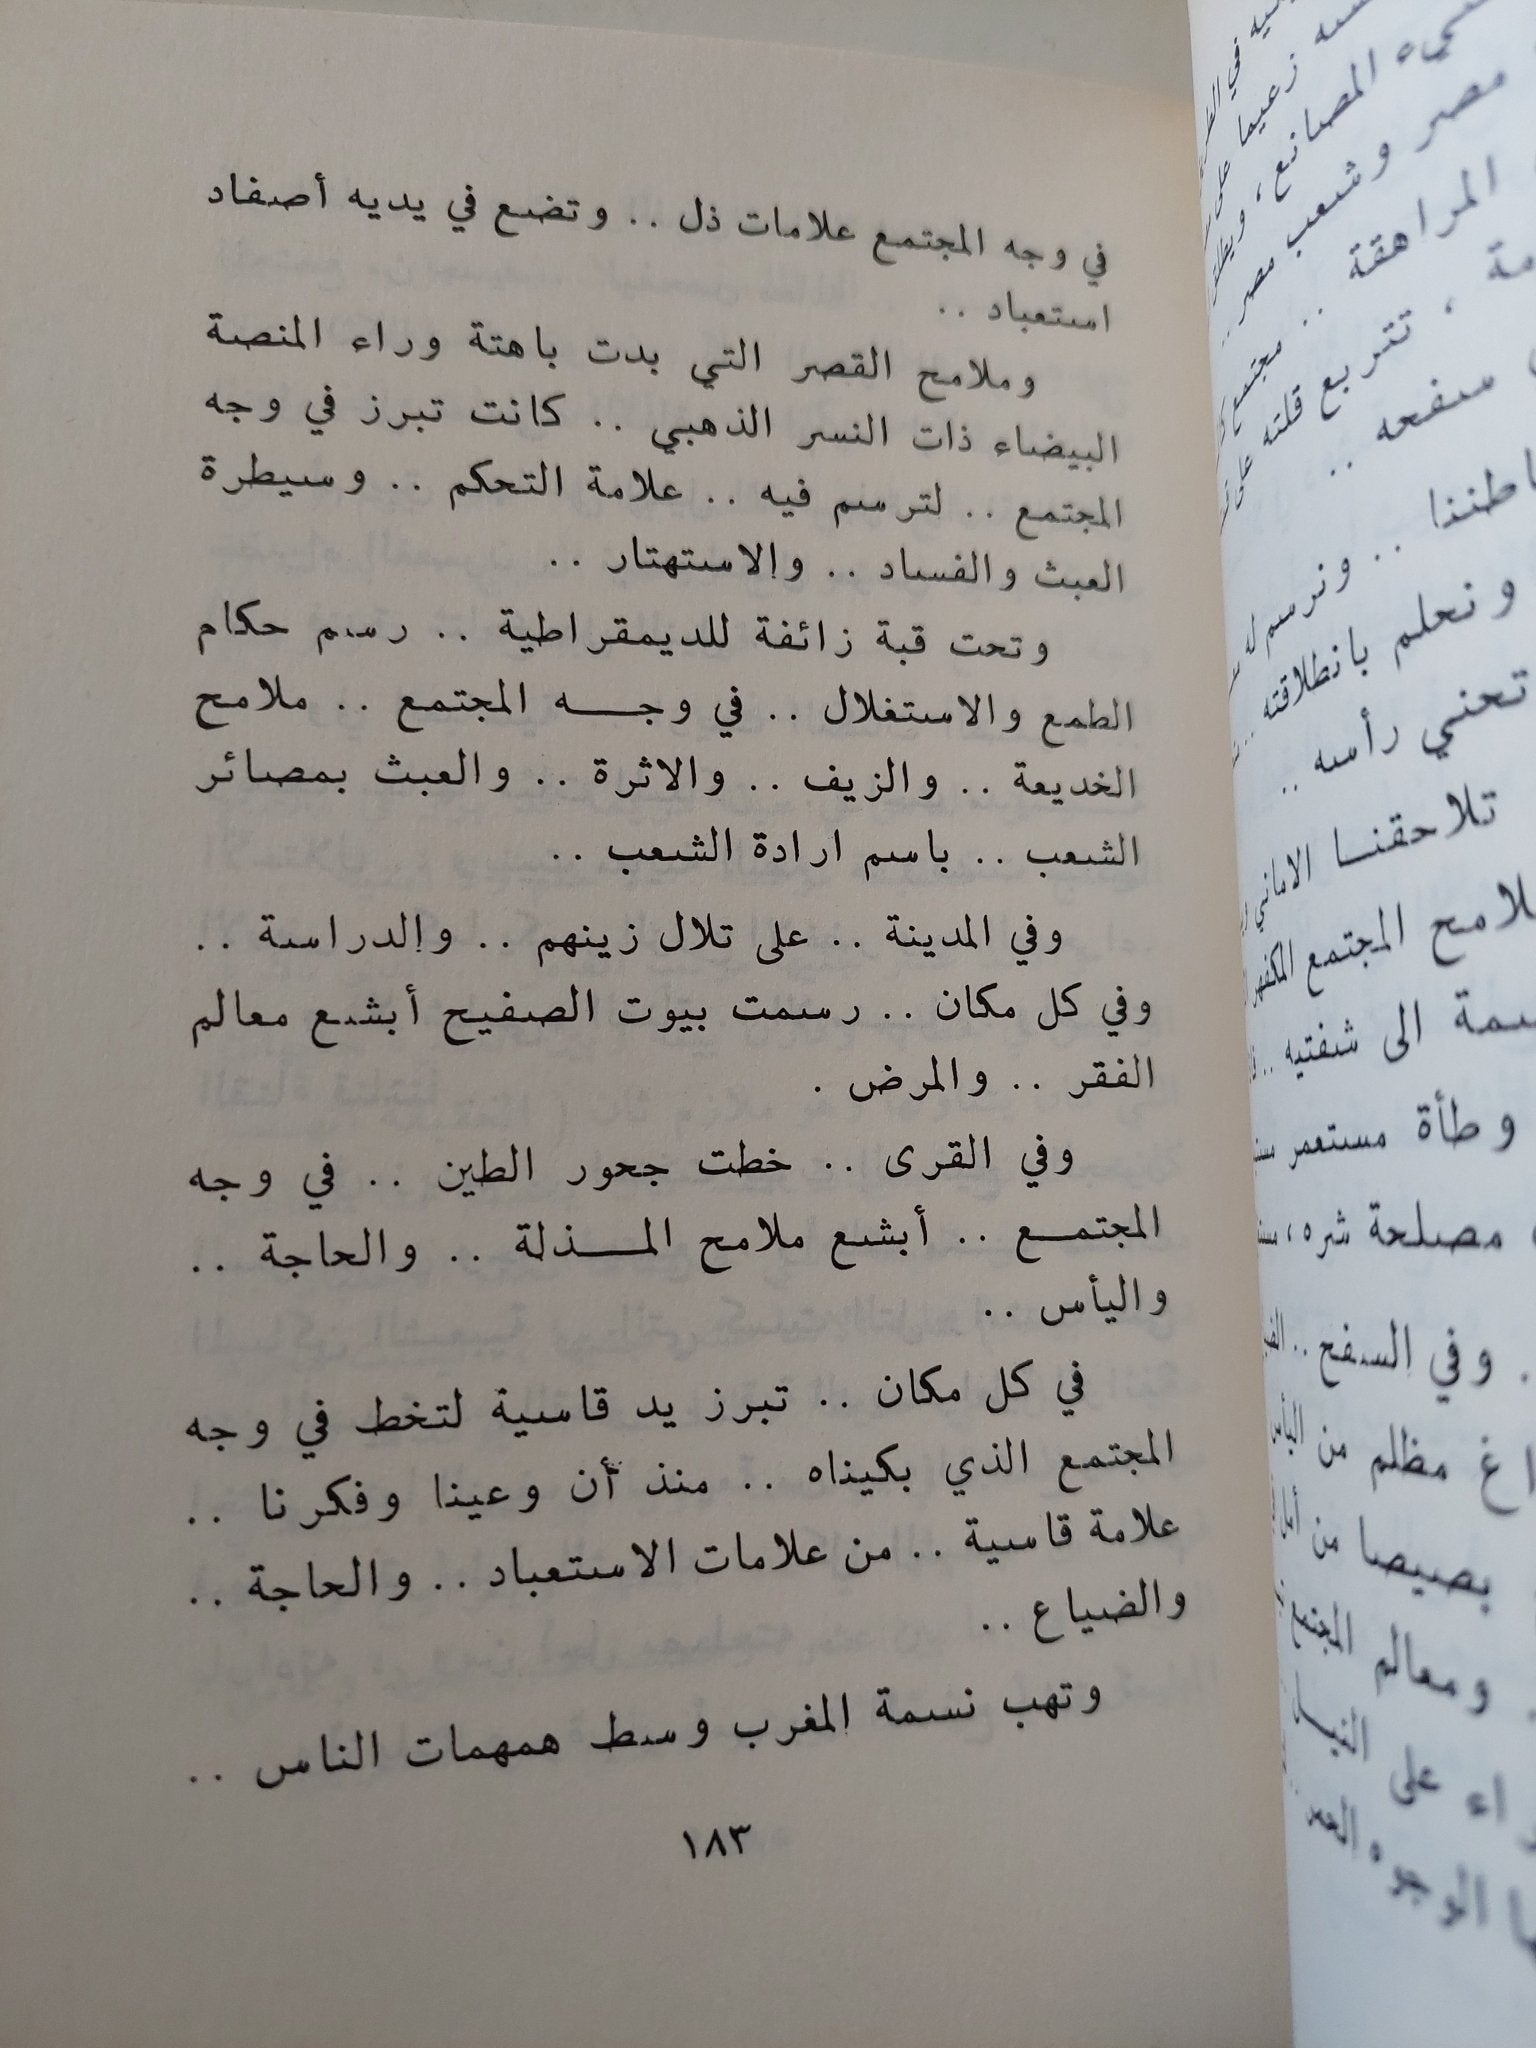 في وجه المجتمع علامات ذل .. وتضع في يديه أصفاد
استعباد ..
وملامح القصر التي بدت باهتة وراء المنصة
البيضاء ذات النسر الذهبي .. كانت تبرز في وجه
المجتمع .. لترسم فيه .. علامة التحكم .. وسيطرة
العبث والفساد .. والاستهتار ..
وتحت قبة زائفة للديمقراطية .. رسم حكام
الطمع والاستغلال .. في وجـــه المجتمع .. ملامح
الخديعة .. والزيف .. والاثرة .. والعبث بمصائر
الشعب .. باسم ارادة الشعب ..
وفي المدينة .. على تلال زينهم .. والدراسة ..
وفي كل مكان .. رسمت بيوت الصفيح أبشع معالم
الفقر .. والمرض .
وفي القرى .. خطت جحور الطين .. في وجه
المجتمـــع .. أبشع ملامح المـــذلة .. والحاجة ..
واليأس ..
في كل مكان .. تبرز يد قاسية لتخط في وجه
المجتمع الذي بكيناه .. منذ أن وعينا وفكرنا ..
علامة قاسية .. من علامات الاستعباد .. والحاجة ..
والضياع ..
وتهب نسمة المغرب وسط همهمات الناس ..
١٨٣
زعيما
المصانع ،
مصر وشعب مصر ..
المراهقة .. مجتمع
، تتربع قلته على
سفحه ..
.. ونرسم له
ونحلم بانطلاقته ..
تحني رأسه ..
تلاحقنـا الاماني
المجتمع المكفهر
الى شفتيه ..
وطأة مستعمر
مصلحة شره ،
. وفي السفح ..
مظلم من
بصيصا من
ومعالم المجتمع
على
الوجوه